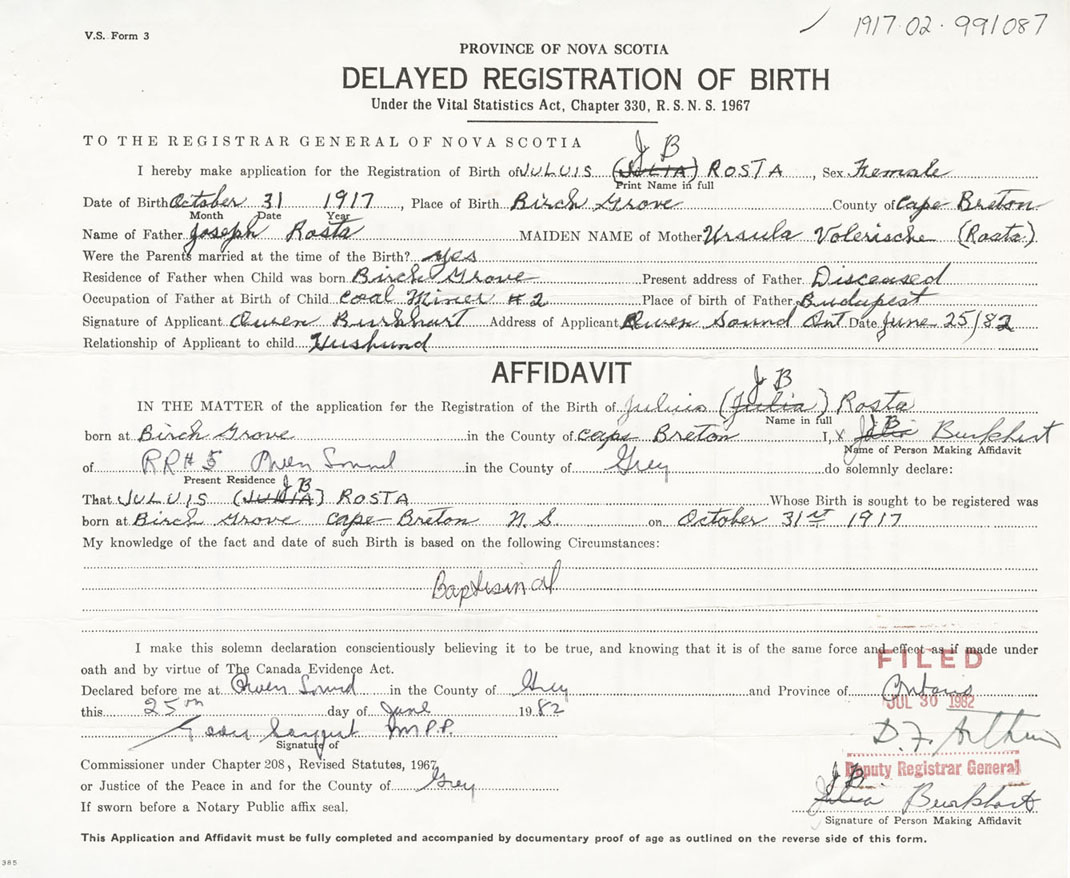 V.S. Form 3
1917-02-991087
PROVINCE OF NOVA SCOTIA
DELAYED REGISTRATION OF BIRTH
Under the Vital Statistics Act, Chapter 330, R. S. N. S. 1967
TO THE REGISTRAR GENERAL OF NOVA SCOTIA
J B
I hereby make application for the Registration of Birth of JULUIS (JULIA) ROSTA, Sex Female
Print Name in full
Date of Birth October 31 1917, Place of Birth Birch Grove County of Cape Breton
Month Date Year
Name of Father Joseph Rosta MAIDEN NAME of Mother Ursula Volerische (Rosta)
Were the Parents married at the time of the Birth? yes
Residence of Father when Child was born Birch Grove Present address of Father Disceased
Occupation of Father at Birth of Child Coal Miner #2 Place of birth of Father Budapest
Signature of Applicant Owen Burkhart Address of Applicant Owen Sound Ont Date June 25/82
Relationship of Applicant to child Husband
AFFIDAVIT
J B
IN THE MATTER of the application for the Registration of the Birth of Julius (Julia) Rosta
Name in full
born at Birch Grove in the County of Cape Breton I, x Julia J B Burkhart
Name of Person Making Affidavit
of RR#5 Owen Sound in the County of Grey do solemnly declare:
Present Residence
J B
That JULUIS (JULIA) ROSTA Whose Birth is sought to be registered was
born at Birch Grove Cape Breton N.S. on October 31st 1917
My knowledge of the fact and date of such Birth is based on the following Circumstances:
Baptisimal
I make this solemn declaration conscientiously believing it to be true, and knowing that it is of the same force and effect as if made under
oath and by virtue of The Canada Evidence Act.
FILED
Declared before me at Owen Sound in the County of Grey and Province of Ontario
JUL 30 1982
this 25th day of June 1982
M.P.P.
D. F. Arthur
Signature of
Commissioner under Chapter 208, Revised Statutes, 1967
Deputy Registrar General
or Justice of the Peace in and for the County of Grey
J B
Julia Burkhart
If sworn before a Notary Public affix seal.
Signature of Person Making Affidavit
This Application and Affidavit must be fully completed and accompanied by documentary proof of age as outlined on the reverse side of this form.
385